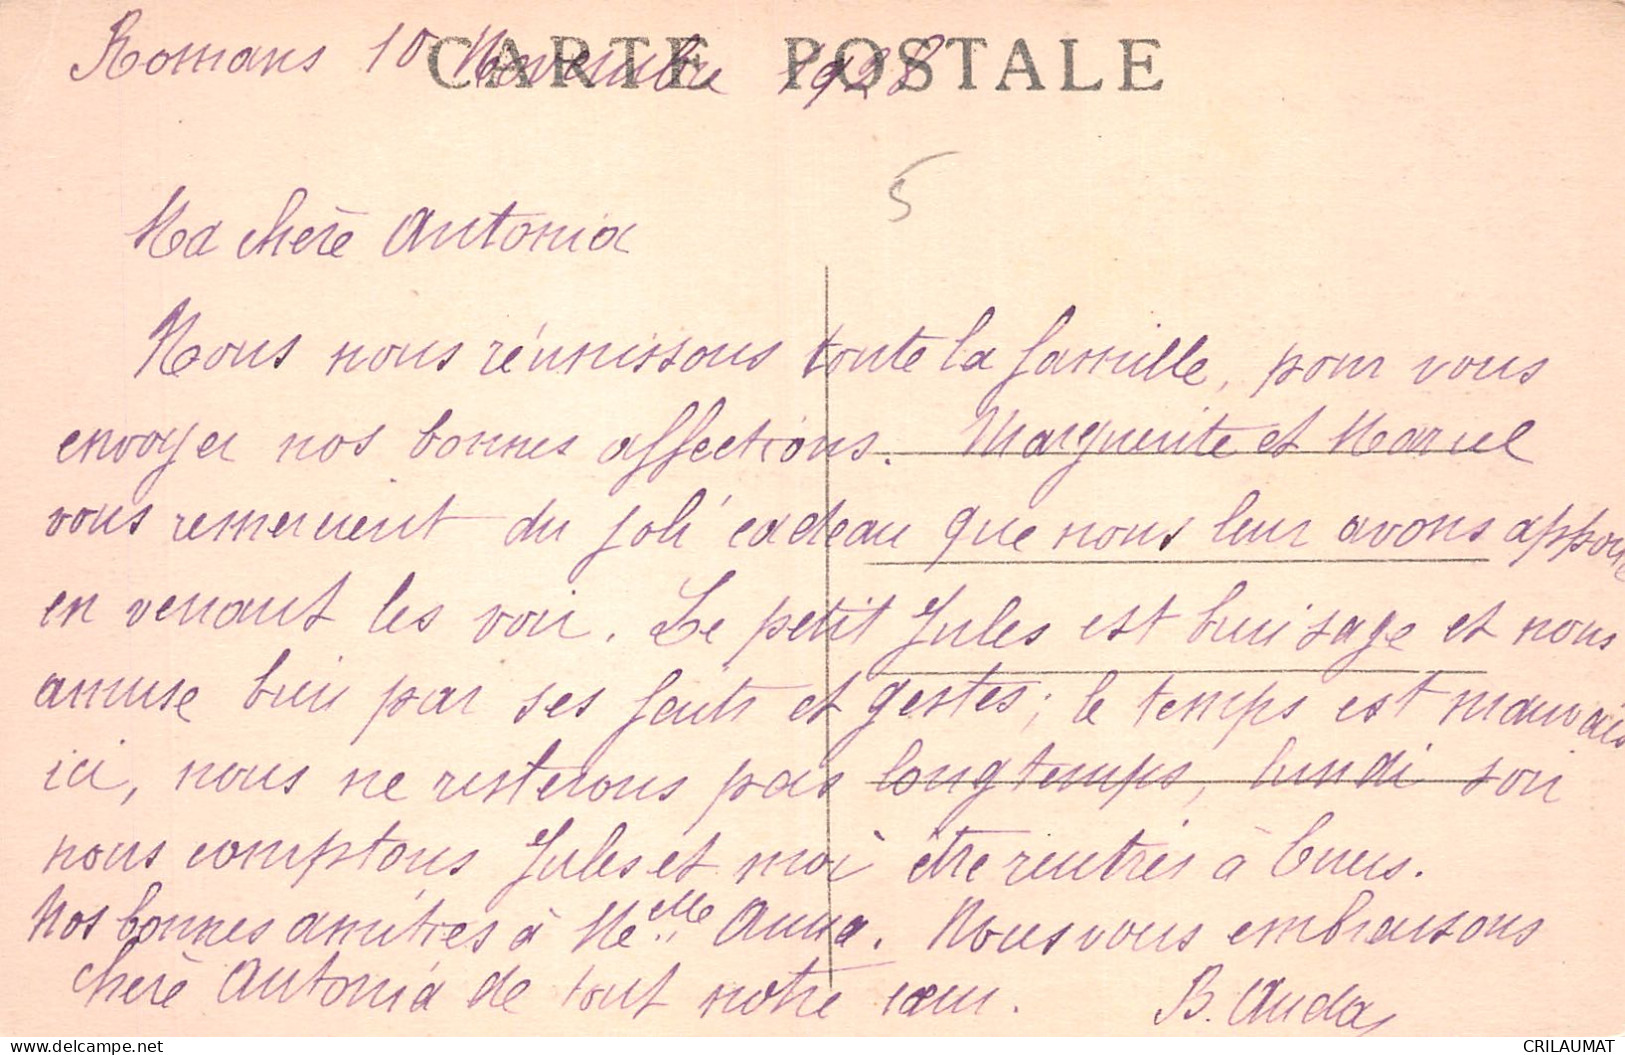 CARTE POSTALE
Romans 10 Novembre 1928
5
Ma chère Antonia
Nous nous réunissons toute la famille, pour vous
envoyer nos bonnes affections. Marguerite et Marcel
vous remercient du joli cadeau que nous leur avons apporté
en venant les voir. Le petit Jules est bien sage et nous
amuse bien par ses faits et gestes; le temps est mauvais
ici, nous ne resterons pas longtemps, lundi soir
nous comptons Jules et moi être rentrés à Cuers.
Nos bonnes amitiés à Melle Anna. Nous vous embrassons
chère Antonia de tout notre cœur. B.
CRILAUMAT